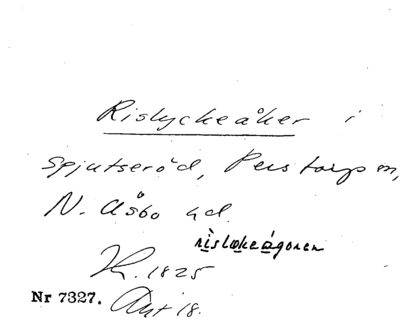 Rislyckeåker i
Spjutseröd, Perstorp sn,
N. Åsbo hd.
risløkeågoren
K. 1825
Nr 7327. Akt 18.